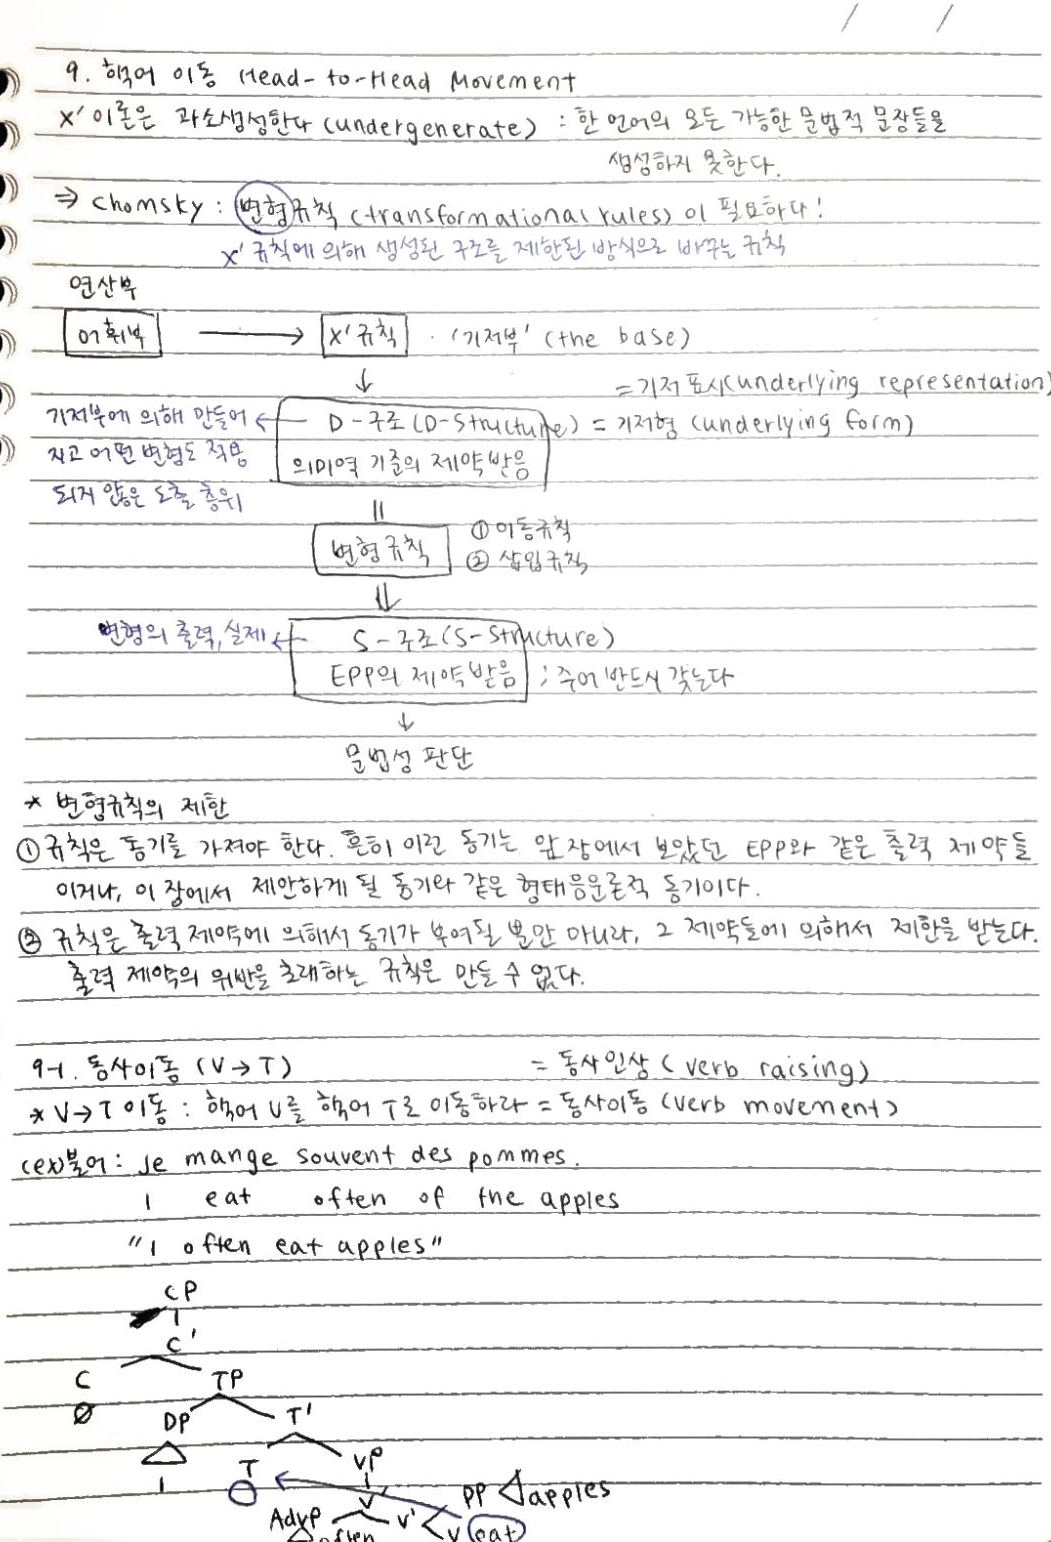 9. 핵어 이동 Head-to-Head Movement
X' 이론은 과소생성한다 (undergenerate) : 한 언어의 모든 가능한 문법적 문장들을
생성하지 못한다.
⇒ Chomsky : 변형규칙 (transformational rules) 이 필요하다!
X' 규칙에 의해 생성된 구조를 제한된 방식으로 바꾸는 규칙
연산부
어휘부 → X' 규칙 · '기저부' (the base)
↓ = 기저 표시(underlying representation)
기저부에 의해 만들어 ← D-구조 (D-Structure) = 기저형 (underlying form)
지고 어떤 변형도 적용 의미역 기준의 제약받음
되지 않은 도출 층위
변형규칙 ① 이동규칙
② 삽입규칙
⇓
변형의 출력, 실제 ← S-구조 (S-Structure)
EPP의 제약받음 ; 주어 반드시 갖는다
↓
문법성 판단
* 변형규칙의 제한
① 규칙은 동기를 가져야 한다. 흔히 이런 동기는 앞 장에서 보았던 EPP와 같은 출력 제약들
이거나, 이 장에서 제안하게 될 동기와 같은 형태음운론적 동기이다.
② 규칙은 출력 제약에 의해서 동기가 부여될 뿐만 아니라, 그 제약들에 의해서 제한을 받는다.
출력 제약의 위반을 초래하는 규칙은 만들 수 없다.
9-1. 동사이동 (V→T) = 동사인상 (verb raising)
* V→T 이동 : 핵어 V를 핵어 T로 이동하라 = 동사이동 (verb movement)
(ex)불어 : Je mange souvent des pommes.
I eat often of the apples
"I often eat apples"
CP
C'
C TP
Ø DP T'
T VP
I V' PP apples
AdvP V' V eat
often